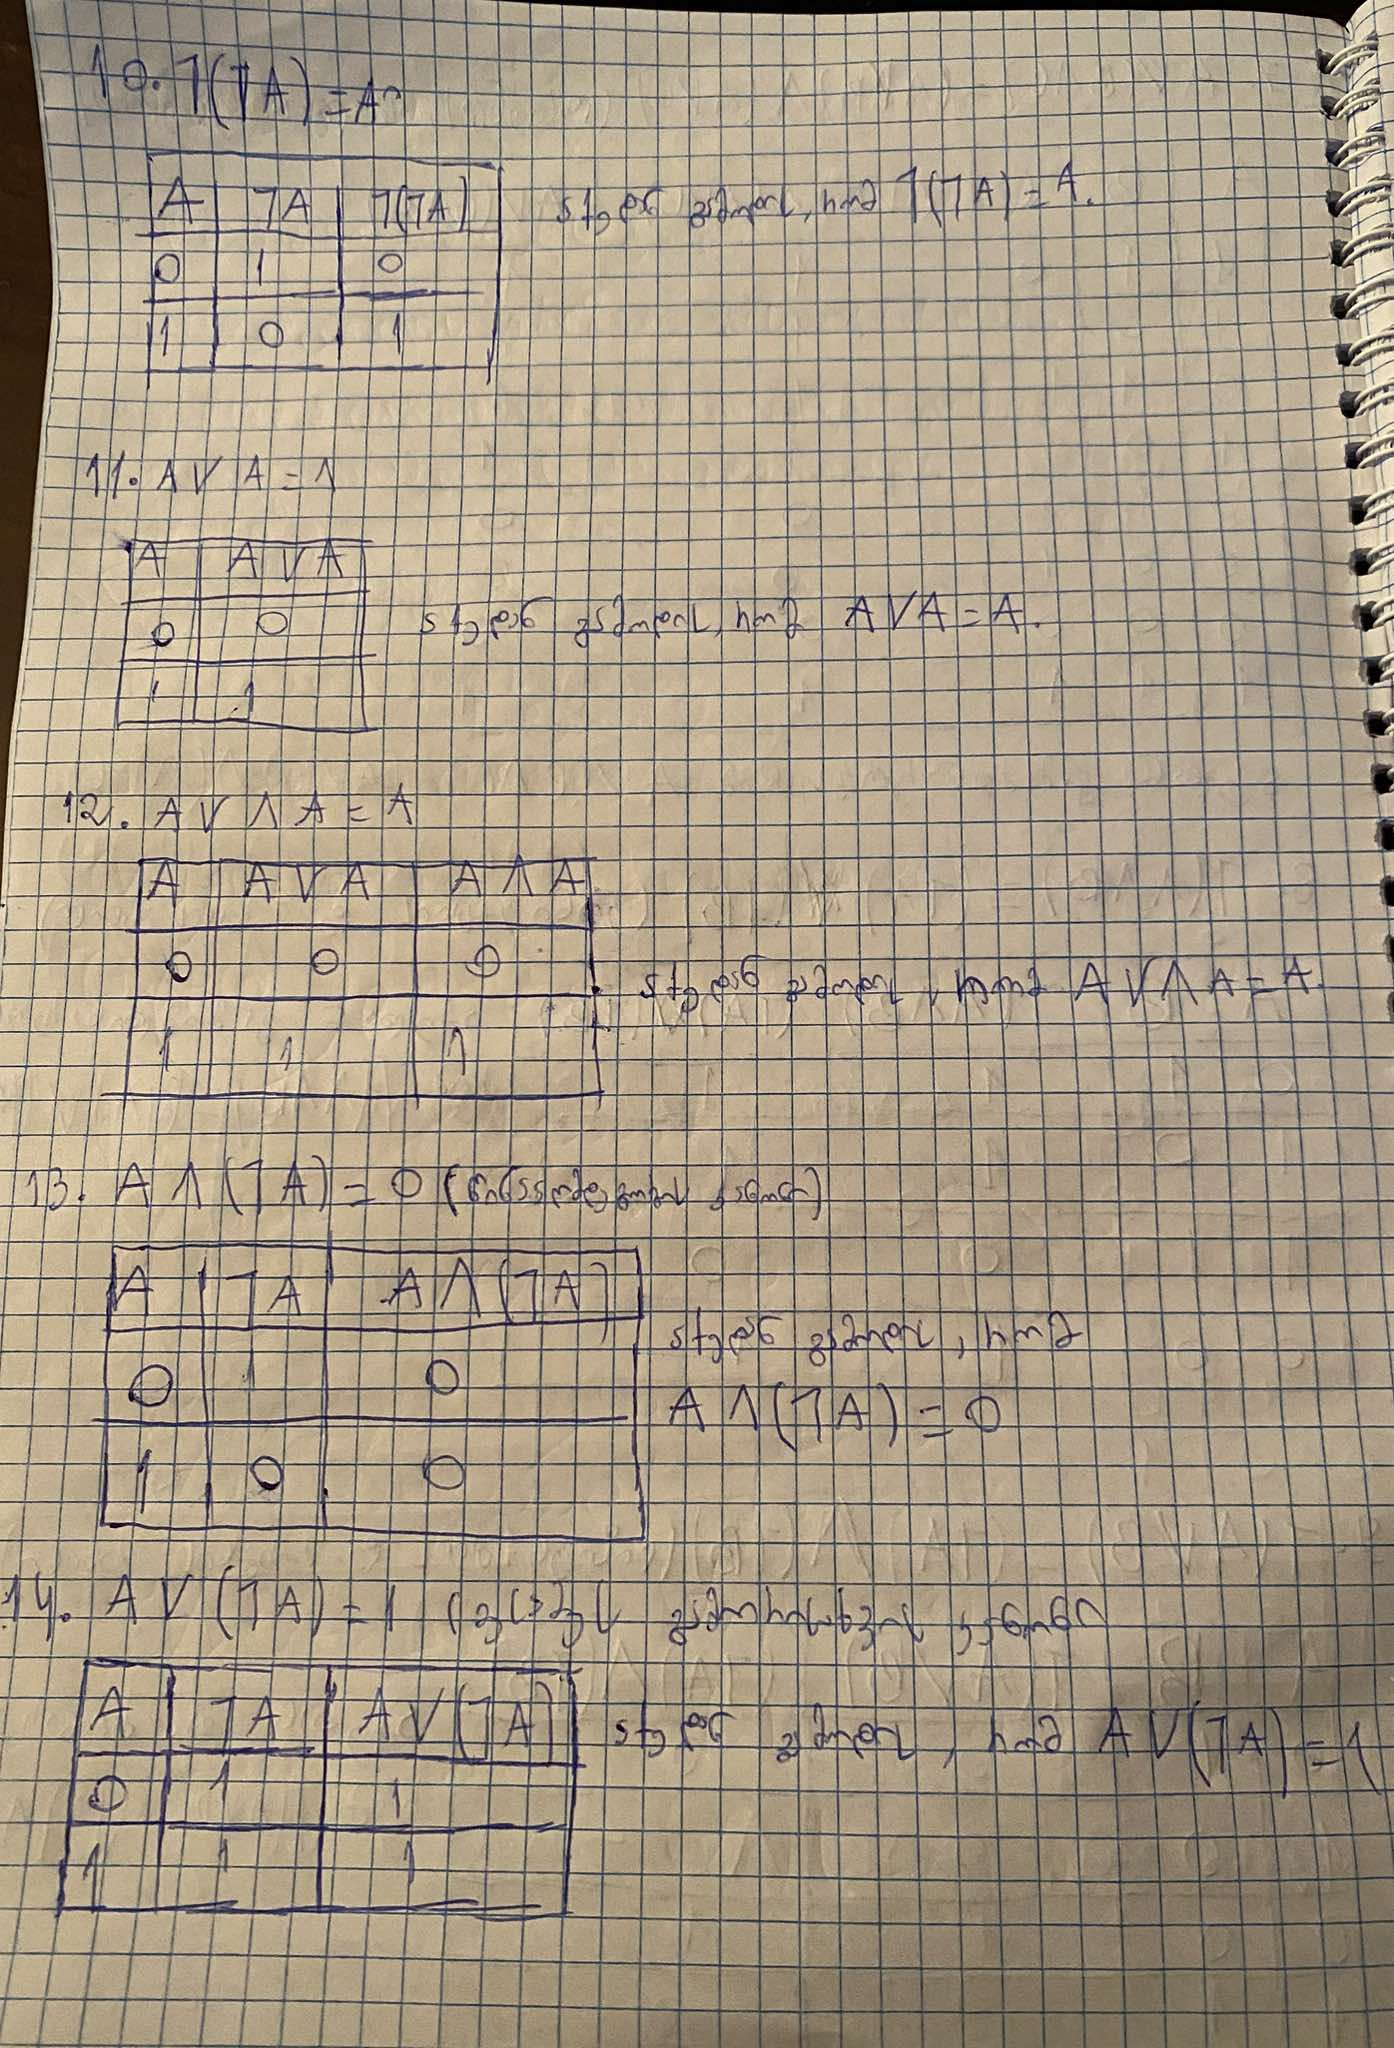 10. ⅂(⅂A) = A
A ⅂A ⅂(⅂A)
0 1 0
1 0 1
აქედან გამოდის, რომ ⅂(⅂A) = A.
11. A V A = 1
A A V A
0 0
1 1
აქედან გამოდის, რომ A V A = A.
12. A V Λ A = A
A A V A A Λ A
0 0 0
1 1 1
აქედან გამოდის, რომ A V Λ A = A.
13. A Λ (⅂A) = 0 (წინააღმდეგობის კანონი)
A ⅂A A Λ (⅂A)
0 1 0
1 0 0
აქედან გამოდის, რომ
A Λ (⅂A) = 0
14. A V (⅂A) = 1 გამორიცხვის კანონი
A ⅂A A V (⅂A)
0 1 1
1 1 1
აქედან გამოდის, რომ A V (⅂A) = 1